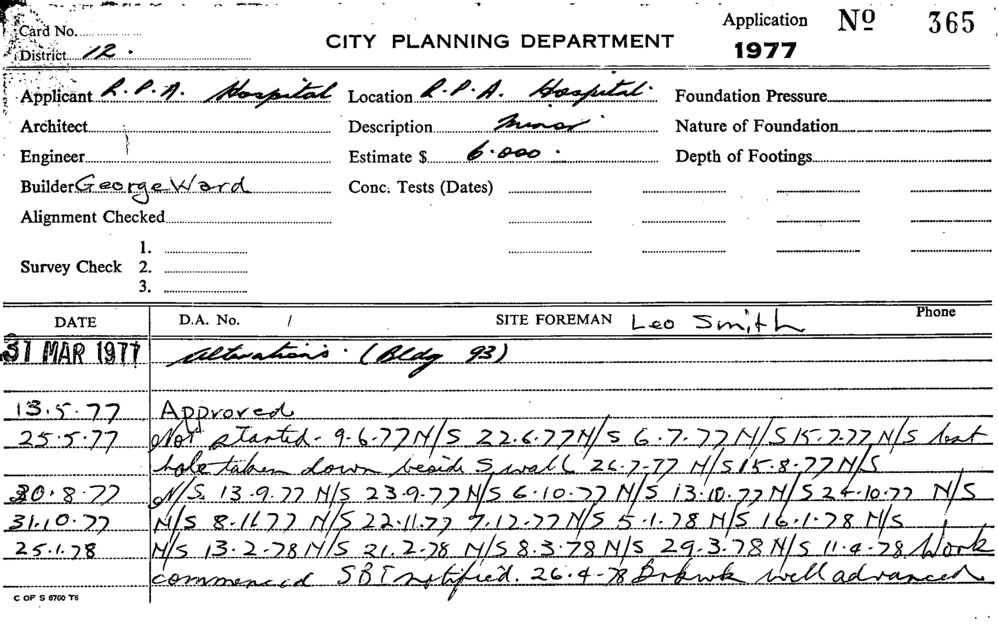 Card No.
Application
1977
Nº 365
District 12.
CITY PLANNING DEPARTMENT
Applicant R. P. A. Hospital Location R. P. A. Hospital Foundation Pressure
Architect Description Minor Nature of Foundation
Engineer Estimate $ 6.000. Depth of Footings
Builder George Ward Conc. Tests (Dates)
Alignment Checked
1.
Survey Check 2.
3.
DATE D.A. No. / SITE FOREMAN Leo Smith Phone
31 MAR 1977 Alterations. (Bldg 93)
13.5.77 Approved
25.5.77 Not started - 9-6-77 N/S 22.6.77 N/S 6.7.77 N/S 15.7.77 N/S test
hole taken down beside S wall 26-7-77 N/S 15.8-77 N/S
30.8.77 N/S 13.9.77 N/S 23.9-77 N/S 6.10.77 N/S 13.10.77 N/S 24.10.77 N/S
31.10.77 N/S 8.11.77 N/S 22.11.77 7.12.77 N/S 5.1.78 N/S 16.1.78 N/S
25.1.78 N/S 13.2.78 N/S 21.2.78 N/S 8.3.78 N/S 29.3.78 N/S 11.4.78 Work
commenced SBI notified. 26.4-78 Brkwk well advanced
C OF S 6760 T6